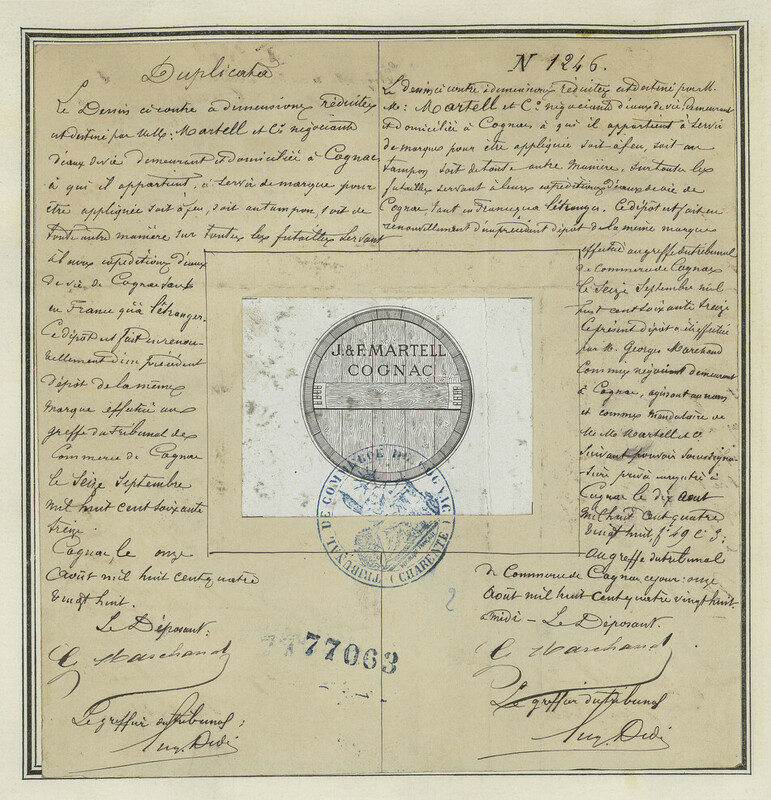 Duplicata
Le Dessin ci contre à dimensions réduites
est destiné par M.M: Martell et Cie négociants
d'eaux de vie demeurant et domiciliée à Cognac
à qui il appartient, à servir de marque pour
être appliquée soit à feu, soit au tampon, soit de
toute autre manière sur toutes les futailles servant
à leurs expéditions d'eaux
de vie de Cognac tant
en France qu'à l'étranger.
Ce dépôt est fait en renou-
vellement d'un précédent
dépôt de la même
marque effectué au
greffe du tribunal de
Commerce de Cognac
le Seize Septembre
mil huit cent soixante
treize.
Cognac, le onze
Août mil huit cent quatre
vingt huit.
Le Déposant:
G Marchand
Le greffier du tribunal;
Eug. Didi
N 1246.
Le dessin ci contre à dimensions réduites est destiné par M.
M: Martell et Cie négociants d'eaux de vie, demeurant
et domiciliée à Cognac à qui il appartient à servir
de marque pour être appliquée soit à feu, soit au
tampon soit de toute autre manière, sur toutes les
futailles servant à leurs expéditions d'eaux de vie de
Cognac, tant en France qu'à l'étranger. Ce dépôt est fait en
renouvellement d'un précédent dépôt de la même marque
effectué au greffe du tribunal
de Commerce de Cognac
le Seize Septembre mil
huit cent soixante treize
Ce présent dépôt a été effectué
par M. Georges Marchand
Commis négociant demeurant
à Cognac, agissant au nom
et comme mandataire de
M. M. Martell et Cie
suivant pouvoir sous signa-
ture privée enregistré à
Cognac le dix août
mil huit cent quatre
vingt huit, f° 49 C 3;
au greffe du tribunal
de Commerce de Cognac ce jour: onze
Août mil huit cent quatre vingt huit.
à midi — Le Déposant.
G Marchand
Le greffier du tribunal
Eug. Didi
J. & F. MARTELL
COGNAC
TRIBUNAL DE COMMERCE DE COGNAC
(CHARENTE)
2
77063